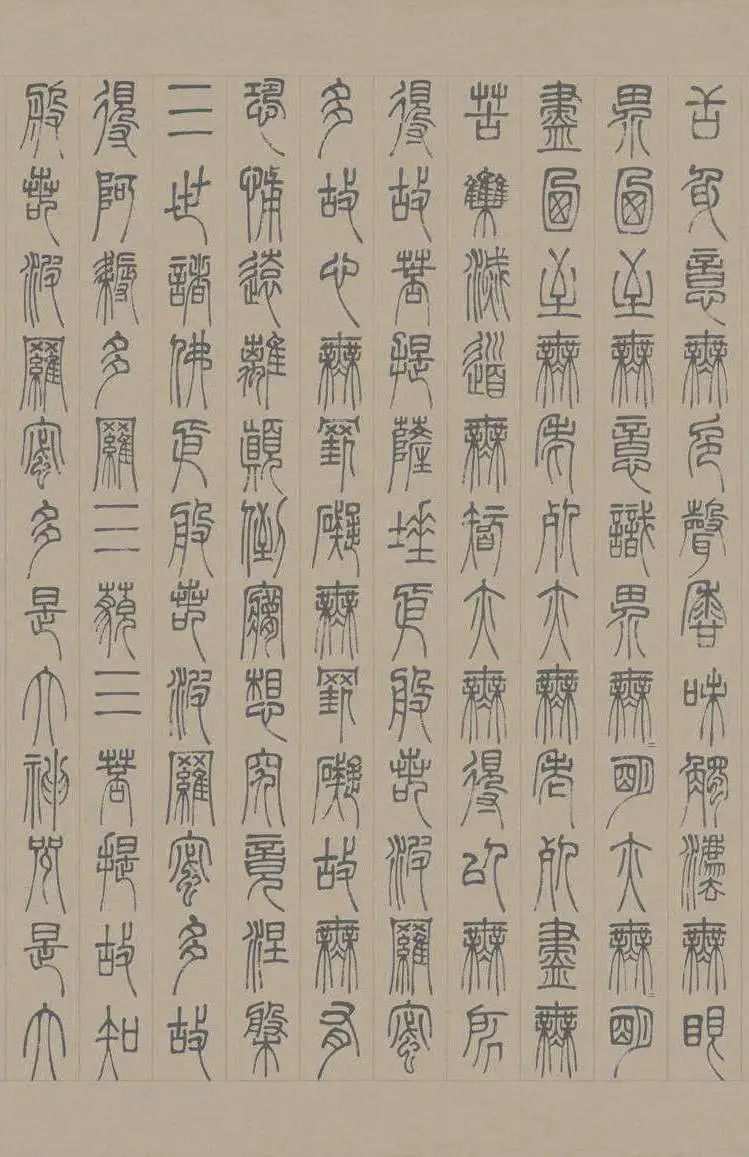 舌身意無色聲香味觸法無眼
界乃至無意識界無〻明亦無〻明
盡乃至無老死亦無老死盡無
苦集滅道無智亦無得以無所
得故菩提薩埵依般若波羅蜜
多故心無罣礙無罣礙故無有
恐怖遠離顛倒夢想究竟涅槃
三世諸佛依般若波羅蜜多故
得阿耨多羅三藐三菩提故知
般若波羅蜜多是大神咒是大